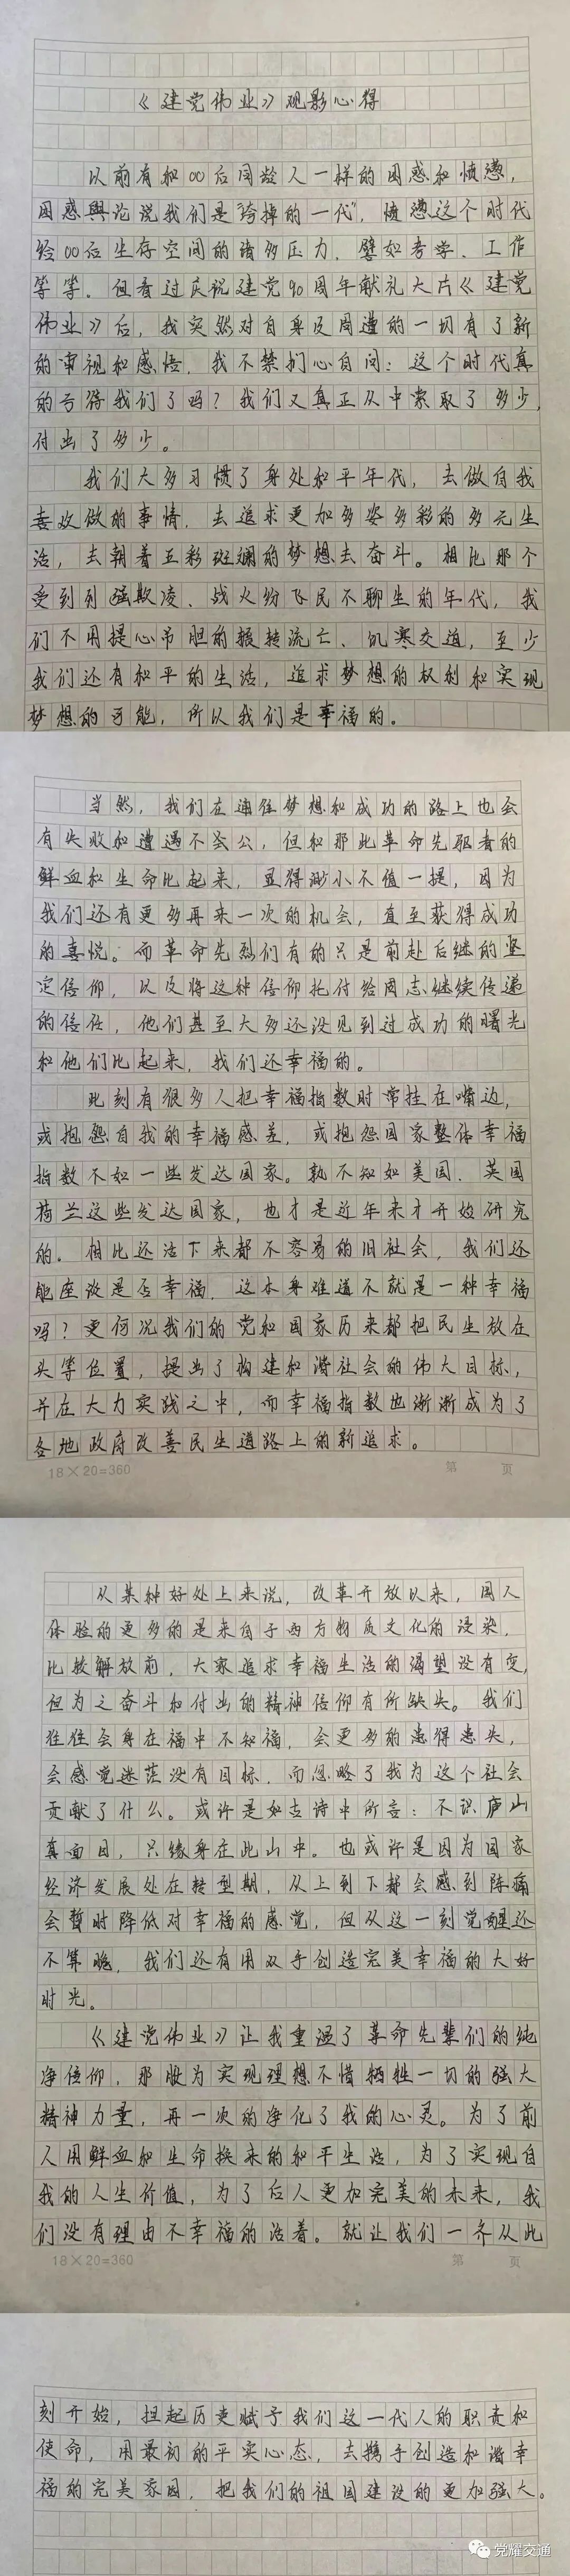 《建党伟业》观影心得
以前有和00后同龄人一样的困惑和愤懑，
困惑舆论说我们是“垮掉的一代”，愤懑这个时代
给00后生存空间的诸多压力，譬如考学、工作
等等。但看过庆祝建党90周年献礼大片《建党
伟业》后，我突然对自身及周遭的一切有了新
的审视和感悟，我不禁扪心自问：这个时代真
的亏待我们了吗？我们又真正从中索取了多少，
付出了多少。
我们大多习惯了身处和平年代，去做自我
喜欢做的事情，去追求更加多姿多彩的多元生
活，去朝着五彩斑斓的梦想去奋斗。相比那个
受到列强欺凌、战火纷飞民不聊生的年代，我
们不用提心吊胆的辗转流亡、饥寒交迫，至少
我们还有和平的生活，追求梦想的权利和实现
梦想的可能，所以我们是幸福的。
当然，我们在通往梦想和成功的路上也会
有失败和遭遇不公，但和那些革命先驱者的
鲜血和生命比起来，显得渺小不值一提，因为
我们还有更多再来一次的机会，直至获得成功
的喜悦。而革命先烈们有的只是前赴后继的坚
定信仰，以及将这种信仰托付给同志继续传递
的信任，他们甚至大多还没见到过成功的曙光
和他们比起来，我们还幸福的。
此刻有很多人把幸福指数时常挂在嘴边，
或抱怨自我的幸福感差，或抱怨国家整体幸福
指数不如一些发达国家。孰不知如美国、英国
荷兰这些发达国家，也才是近年来才开始研究
的。相比还活下来都不容易的旧社会，我们还
能座谈是否幸福，这本身难道不就是一种幸福
吗？更何况我们的党和国家历来都把民生放在
头等位置，提出了构建和谐社会的伟大目标，
并在大力实践之中，而幸福指数也渐渐成为了
各地政府改善民生道路上的新追求。
18×20=360 第 页
从某种好处上来说，改革开放以来，国人
体验的更多的是来自于西方物质文化的浸染，
比较解放前，大家追求幸福生活的渴望没有变，
但为之奋斗和付出的精神信仰有所缺失。我们
往往会身在福中不知福，会更多的患得患失，
会感觉迷茫没有目标，而忽略了我为这个社会
贡献了什么。或许是如古诗中所言：不识庐山
真面目，只缘身在此山中。也或许是因为国家
经济发展处在转型期，从上到下都会感到阵痛
会暂时降低对幸福的感觉，但从这一刻觉醒还
不算晚，我们还有用双手创造完美幸福的大好
时光。
《建党伟业》让我重温了革命先辈们的纯
净信仰，那股为实现理想不惜牺牲一切的强大
精神力量，再一次的净化了我的心灵。为了前
人用鲜血和生命换来的和平生活，为了实现自
我的人生价值，为了后人更加完美的未来，我
们没有理由不幸福的活着。就让我们一齐从此
18×20=360 第 页
刻开始，担起历史赋予我们这一代人的职责和
使命，用最初的平实心态，去携手创造和谐幸
福的完美家园，把我们的祖国建设的更加强大。
党耀交通